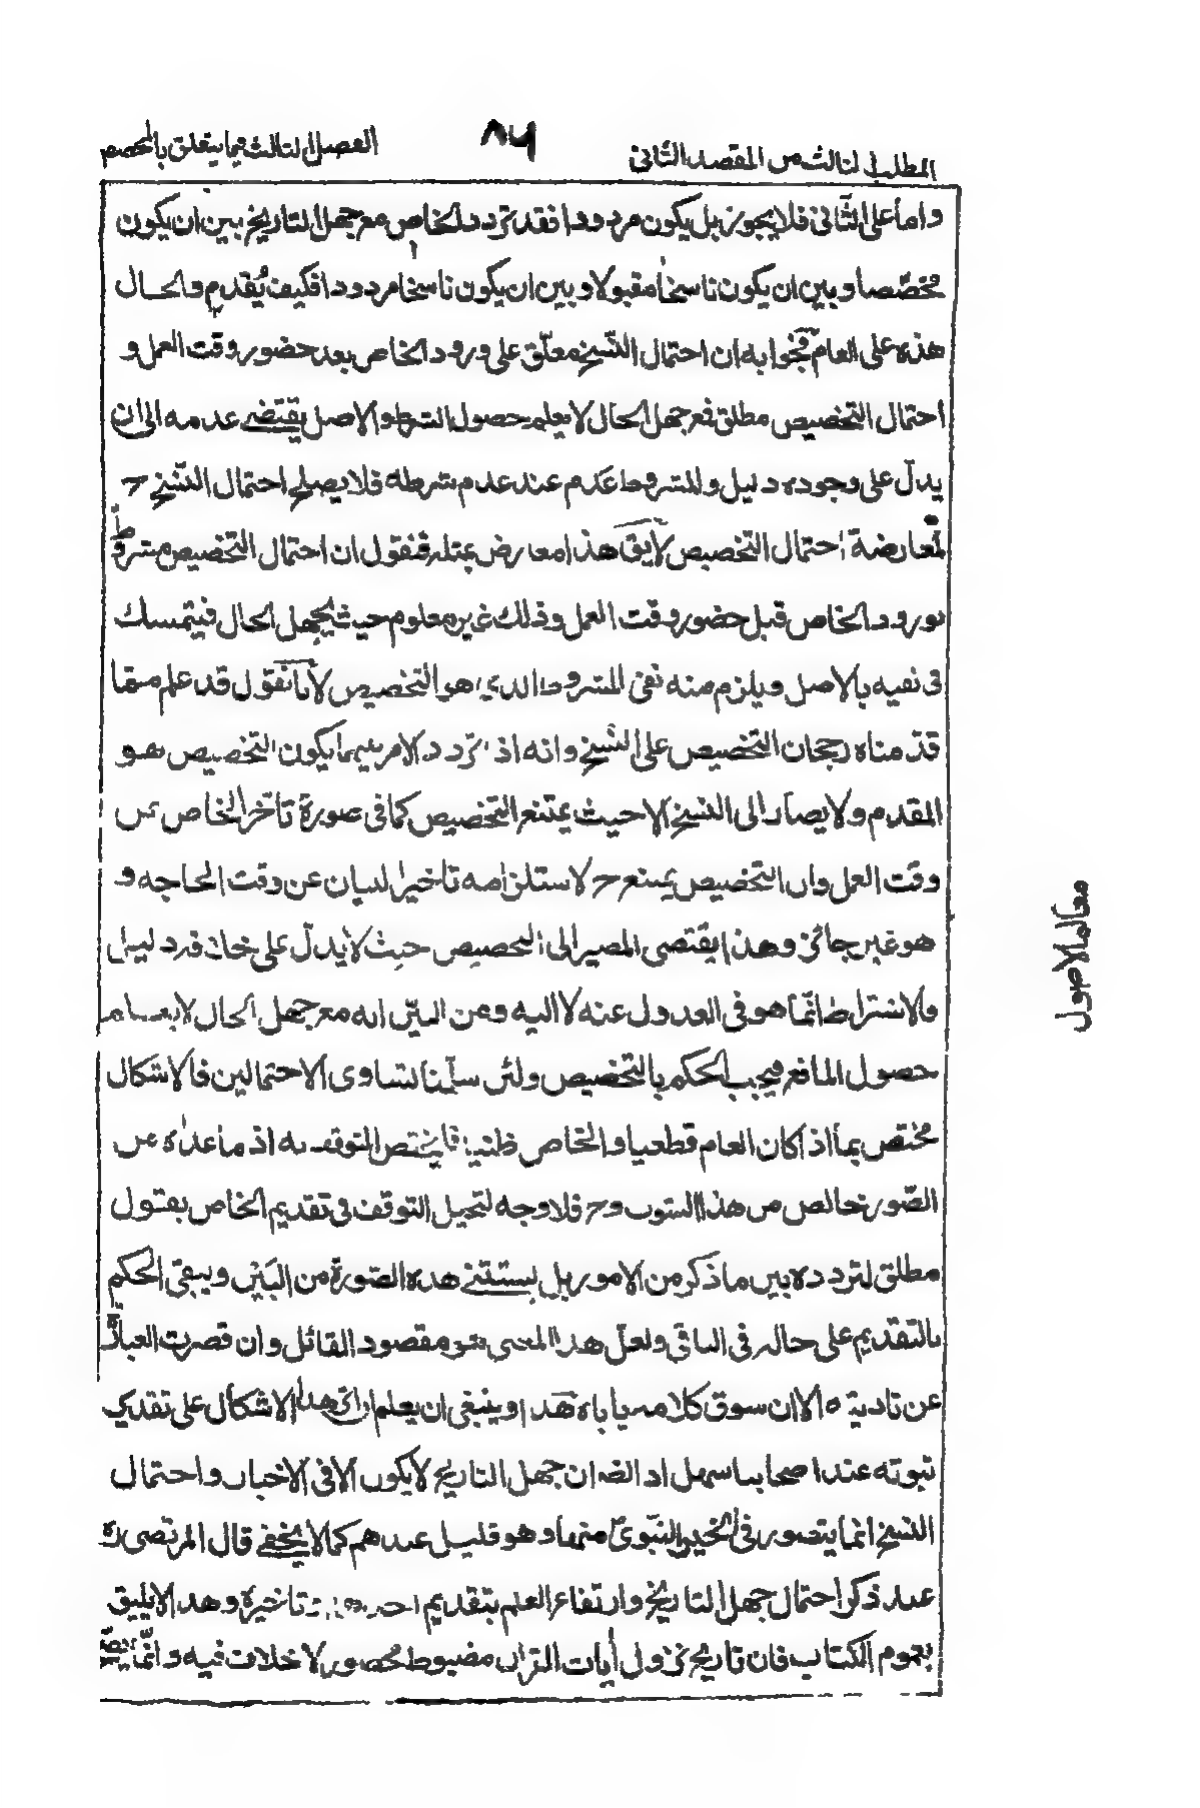 المطلب الثالث من المقصد الثانی
٨٦
الفصل الثالث فیما یتعلق بالمخصص
واما علی الثانی فلا یجوز بل یکون مردودا فقد تردد الخاص مع جهل التاریخ بین ان یکون
مخصّصا و بین ان یکون ناسخا مقبولا و بین ان یکون ناسخا مردودا فکیف یُقدم والحال
هذه علی العام فجوابه ان احتمال النّسخ معلّق علی ورود الخاص بعد حضور وقت العمل و
احتمال التخصیص مطلق فمع جهل الحال لا یعلم حصول الشرط والاصل یقتضی عدمه الی ان
یدلّ علی وجوده دلیل والمشروط عدم عند عدم شرطه فلا یصلح احتمال النّسخ ح
لمعارضة احتمال التخصیص لا یق هذا معارض بمثله فنقول ان احتمال التخصیص مشروط
بورود الخاص قبل حضور وقت العمل وذلک غیر معلوم حیث یجهل الحال فیتمسک
فی نفیه بالاصل ویلزم منه نفی المشروط الذی هو التخصیص لانا نقول قد علم ممّا
قدمناه رجحان التخصیص علی النسخ وانه اذا تردد الامر بینهما یکون التخصیص هو
المقدم ولا یصار الی النسخ الا حیث یمتنع التخصیص کما فی صورة تأخر الخاص عن
وقت العمل وان التخصیص یمتنع ح لاستلزامه تاخیر البیان عن وقت الحاجه و
هو غیر جائز وهذا یقتضی المصیر الی التخصیص حیث لا یدلّ علی خلافه دلیل
والاشتراط انّما هو فی العدول عنه لا الیه ومن البیّن انه مع جهل الحال لا یعلم
حصول المانع فیجب الحکم بالتخصیص ولئن سلّمنا تساوی الاحتمالین فالاشکال
مختص بما اذا کان العام قطعیا والخاص ظنیا فلیختص التوقف به اذ ما عداه من
الصّور خالص من هذا الشوب وح فلا وجه لتحیل التوقف فی تقدیم الخاص بقول
مطلق لتردده بین ما ذکر من الامور بل یستثنی هذه الصّورة من البَیْن ویبقی الحکم
بالتقدیم علی حاله فی الباقی ولعلّ هذا المعنی هو مقصود القائل وان قصرت العبارة
عن تادیته الا ان سوق کلامه یاباه هَذا وینبغی ان یعلم ان هذا الاشکال علی تقدیر
ثبوته عند اصحابنا سهل اذ الظ ان جهل التاریخ لا یکون الا فی الاخبار واحتمال
النسخ انما یتصور فی الخبر النّبویّ منها وهو قلیل عندهم کما لا یخفی قال المرتضی ره
عند ذکر احتمال جهل التاریخ وارتفاع العلم بتقدیم احدهما و تاخیره وهذا لا یلیق
بعموم الکتاب فان تاریخ نزول آیات القرآن مضبوط محصور لا خلاف فیه وانّما یصحّ
معالم الاصول